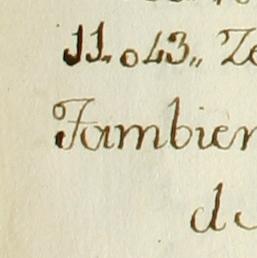 11.043„ Ze
Jambien
de